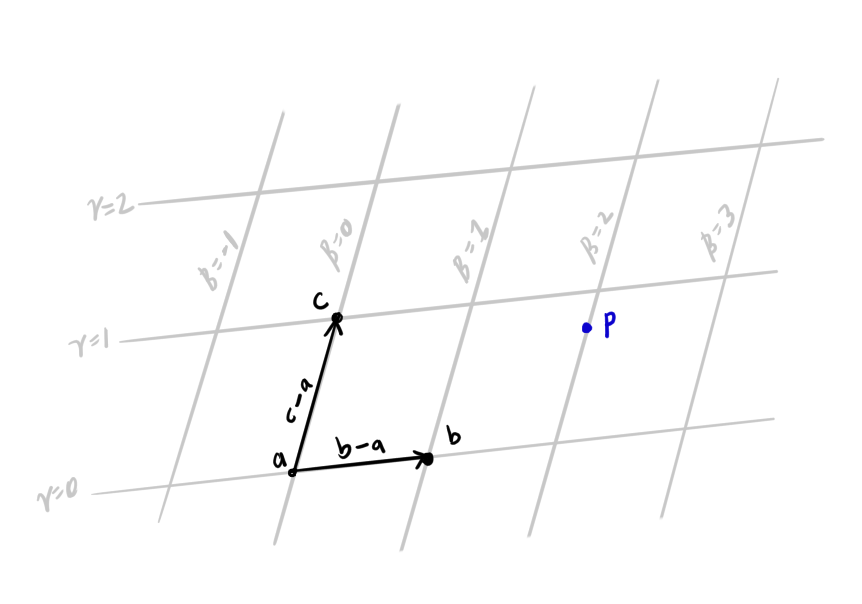 γ=2
β=-1
β=0
β=1
β=2
β=3
c
γ=1
p
c-a
a
b-a
b
γ=0